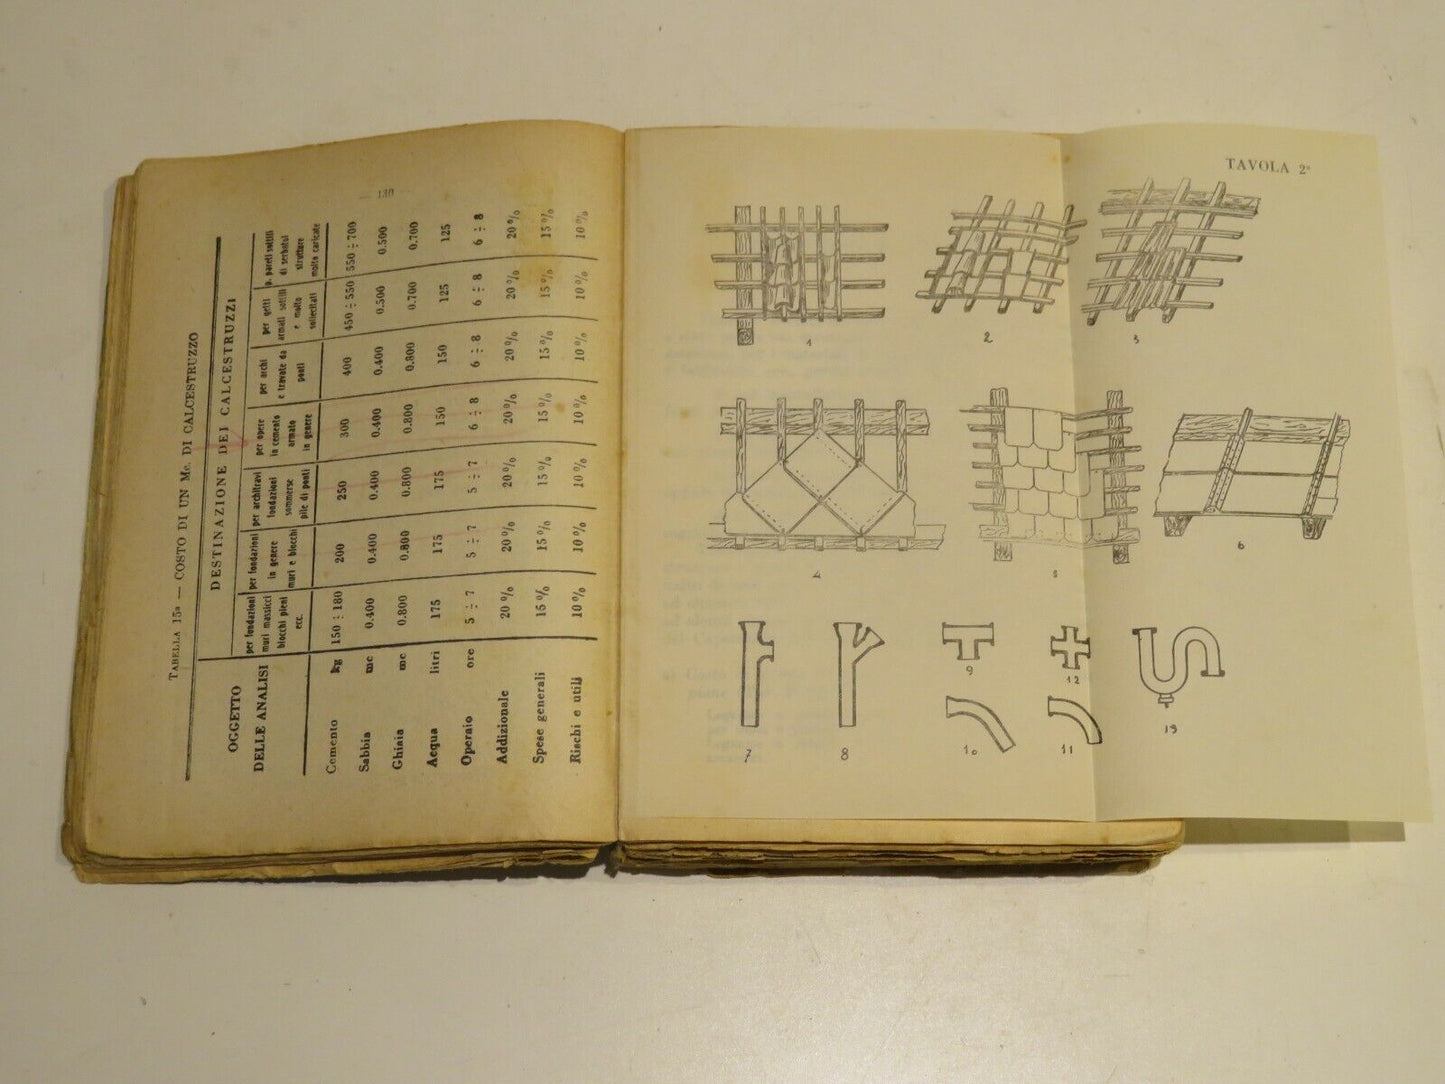 — 130 —
TABELLA 15ª — COSTO DI UN Mc. DI CALCESTRUZZO
OGGETTO DELLE ANALISI
DESTINAZIONE DEI CALCESTRUZZI
per fondazioni muri massicci blocchi pieni ecc.
per fondazioni in genere muri e blocchi
per architravi fondazioni sommerse pile di ponti
per opere in cemento armato in genere
per archi e travate da ponti
per getti armati sottili e molto sollecitati
p. pareti sottili di serbatoi strutture molto caricate
Cemento kg 150 ÷ 180 200 250 300 400 450 ÷ 550 550 ÷ 700
Sabbia mc 0.400 0.400 0.400 0.400 0.400 0.500 0.500
Ghiaia mc 0.800 0.800 0.800 0.800 0.800 0.700 0.700
Acqua litri 175 175 175 150 150 125 125
Operaio ore 5 ÷ 7 5 ÷ 7 5 ÷ 7 6 ÷ 8 6 ÷ 8 6 ÷ 8 6 ÷ 8
Addizionale 20 % 20 % 20 % 20 % 20 % 20 % 20 %
Spese generali 15 % 15 % 15 % 15 % 15 % 15 % 15 %
Rischi e utili 10 % 10 % 10 % 10 % 10 % 10 % 10 %
TAVOLA 2ª
1
2
3
4
5
6
7
8
9
12
10
11
13